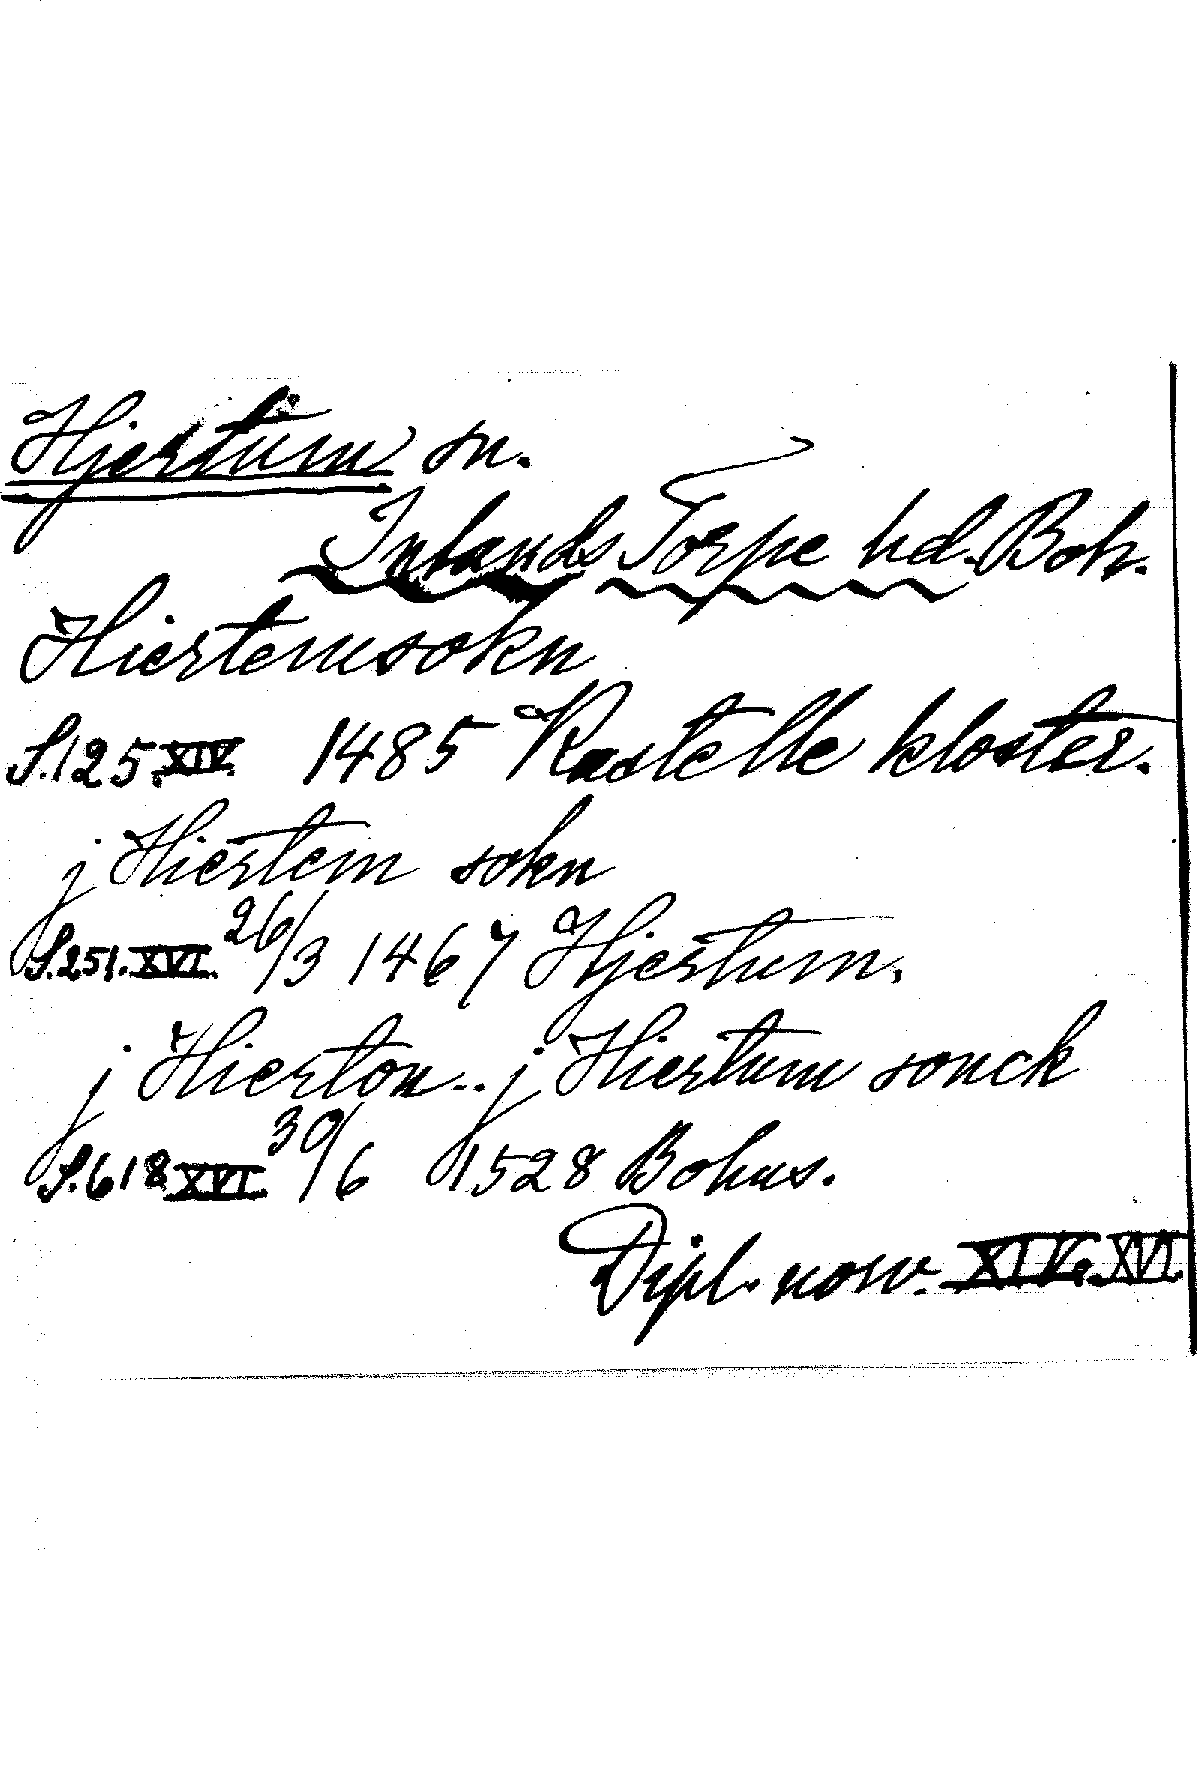 Hjertum sn.
Inlands Torpe hd. Boh.
Hiertemsokn
S.125.XIV. 1485 Kastelle kloster.
j Hiertem sokn
S.251.XVI. 26/3 1467 Hjertum.
j Hierton.. j Hiertum sonck
S.618 XVI. 30/6 1528 Bohus.
Dipl. norv. XIV. XVI.